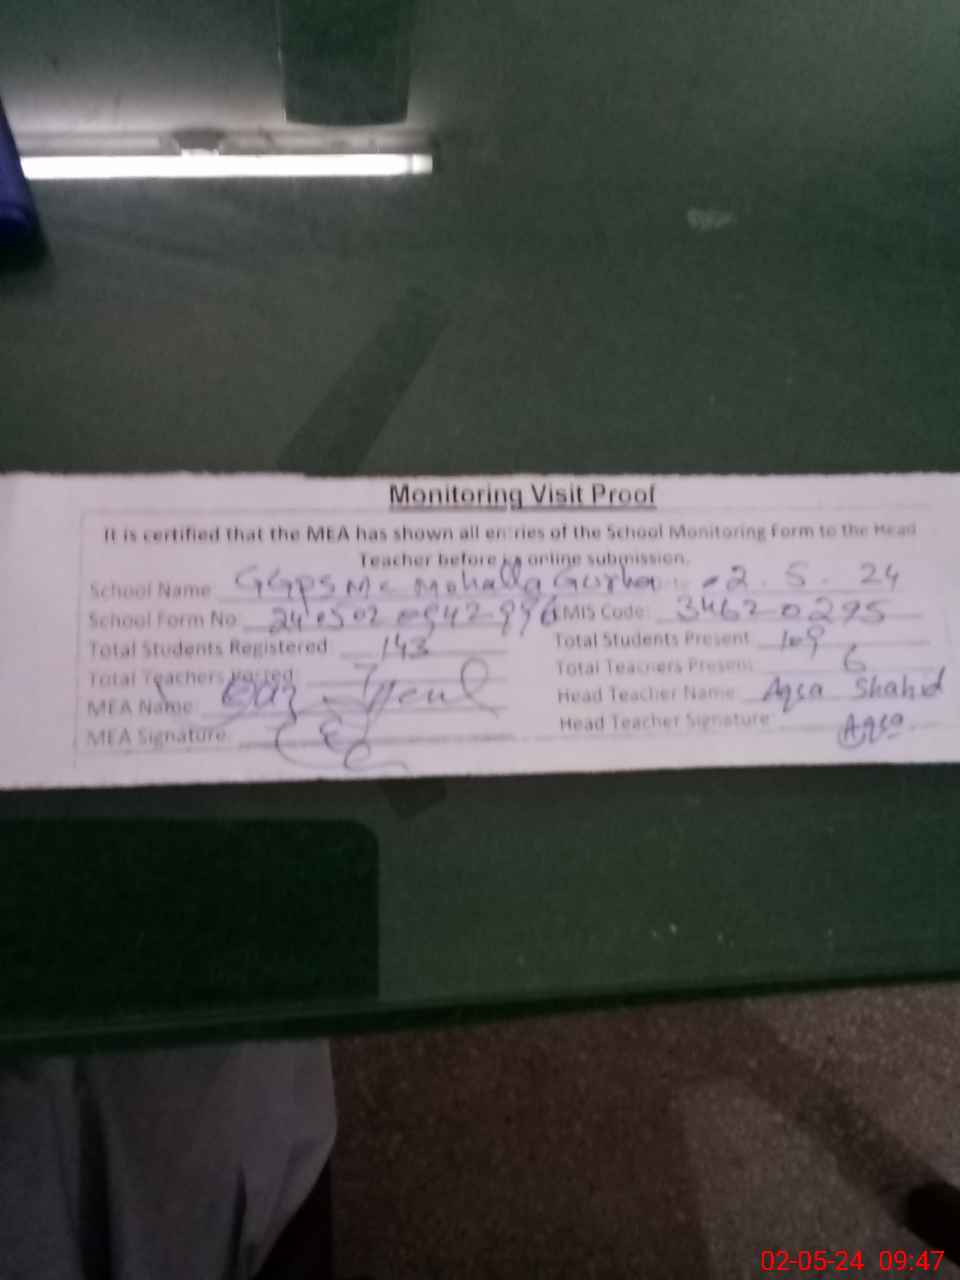 Monitoring Visit Proof
It is certified that the MEA has shown all entries of the School Monitoring Form to the Head
Teacher before online submission.
School Name GGPS MC Mohalla 2.5.24
School Form No: EMIS Code: 34620295
Total Students Registered 143 Total Students Present 109
Total Teachers Posted 7 Total Teachers Present 6
MEA Name: Head Teacher Name: Aqsa Shahid
MEA Signature: Head Teacher Signature: Aqsa
02-05-24 09:47